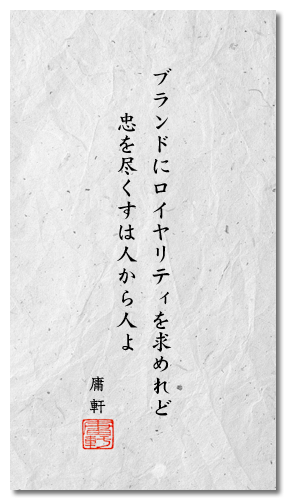 ブランドにロイヤリティを求めれど
忠を尽くすは人から人よ
庸軒